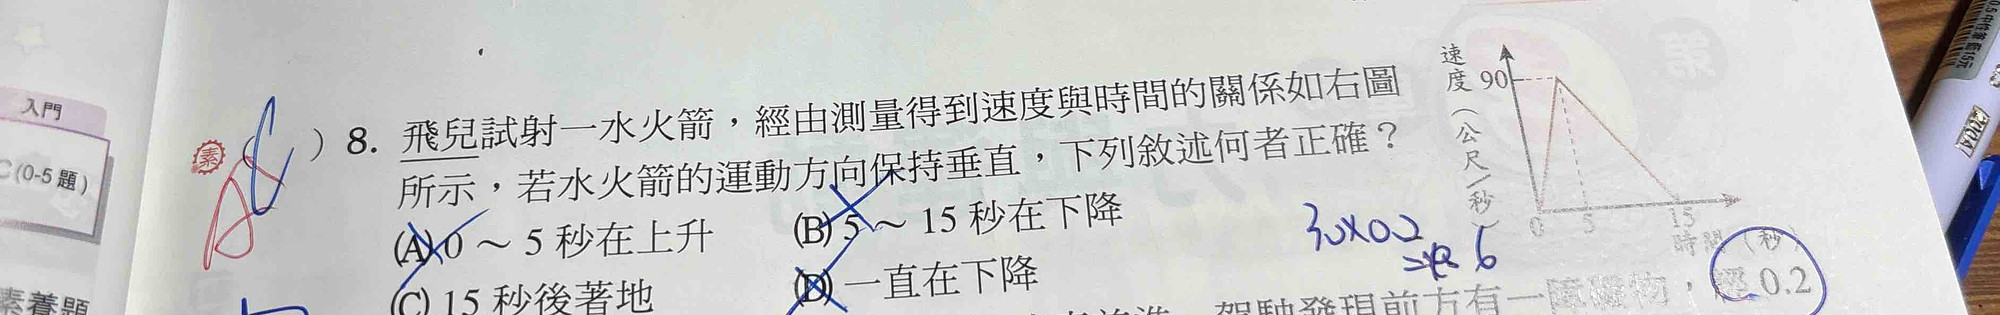 入門
C(0-5題)
素養題
素
)8. 飛兒試射一水火箭，經由測量得到速度與時間的關係如右圖
所示，若水火箭的運動方向保持垂直，下列敘述何者正確？
(A) 0～5秒在上升
(B) 5～15秒在下降
(C) 15秒後著地
(D) 一直在下降
速度（公尺/秒）
90
0 5 15
時間（秒）
30×0.2
6
駕駛發現前方有一障礙物，經0.2